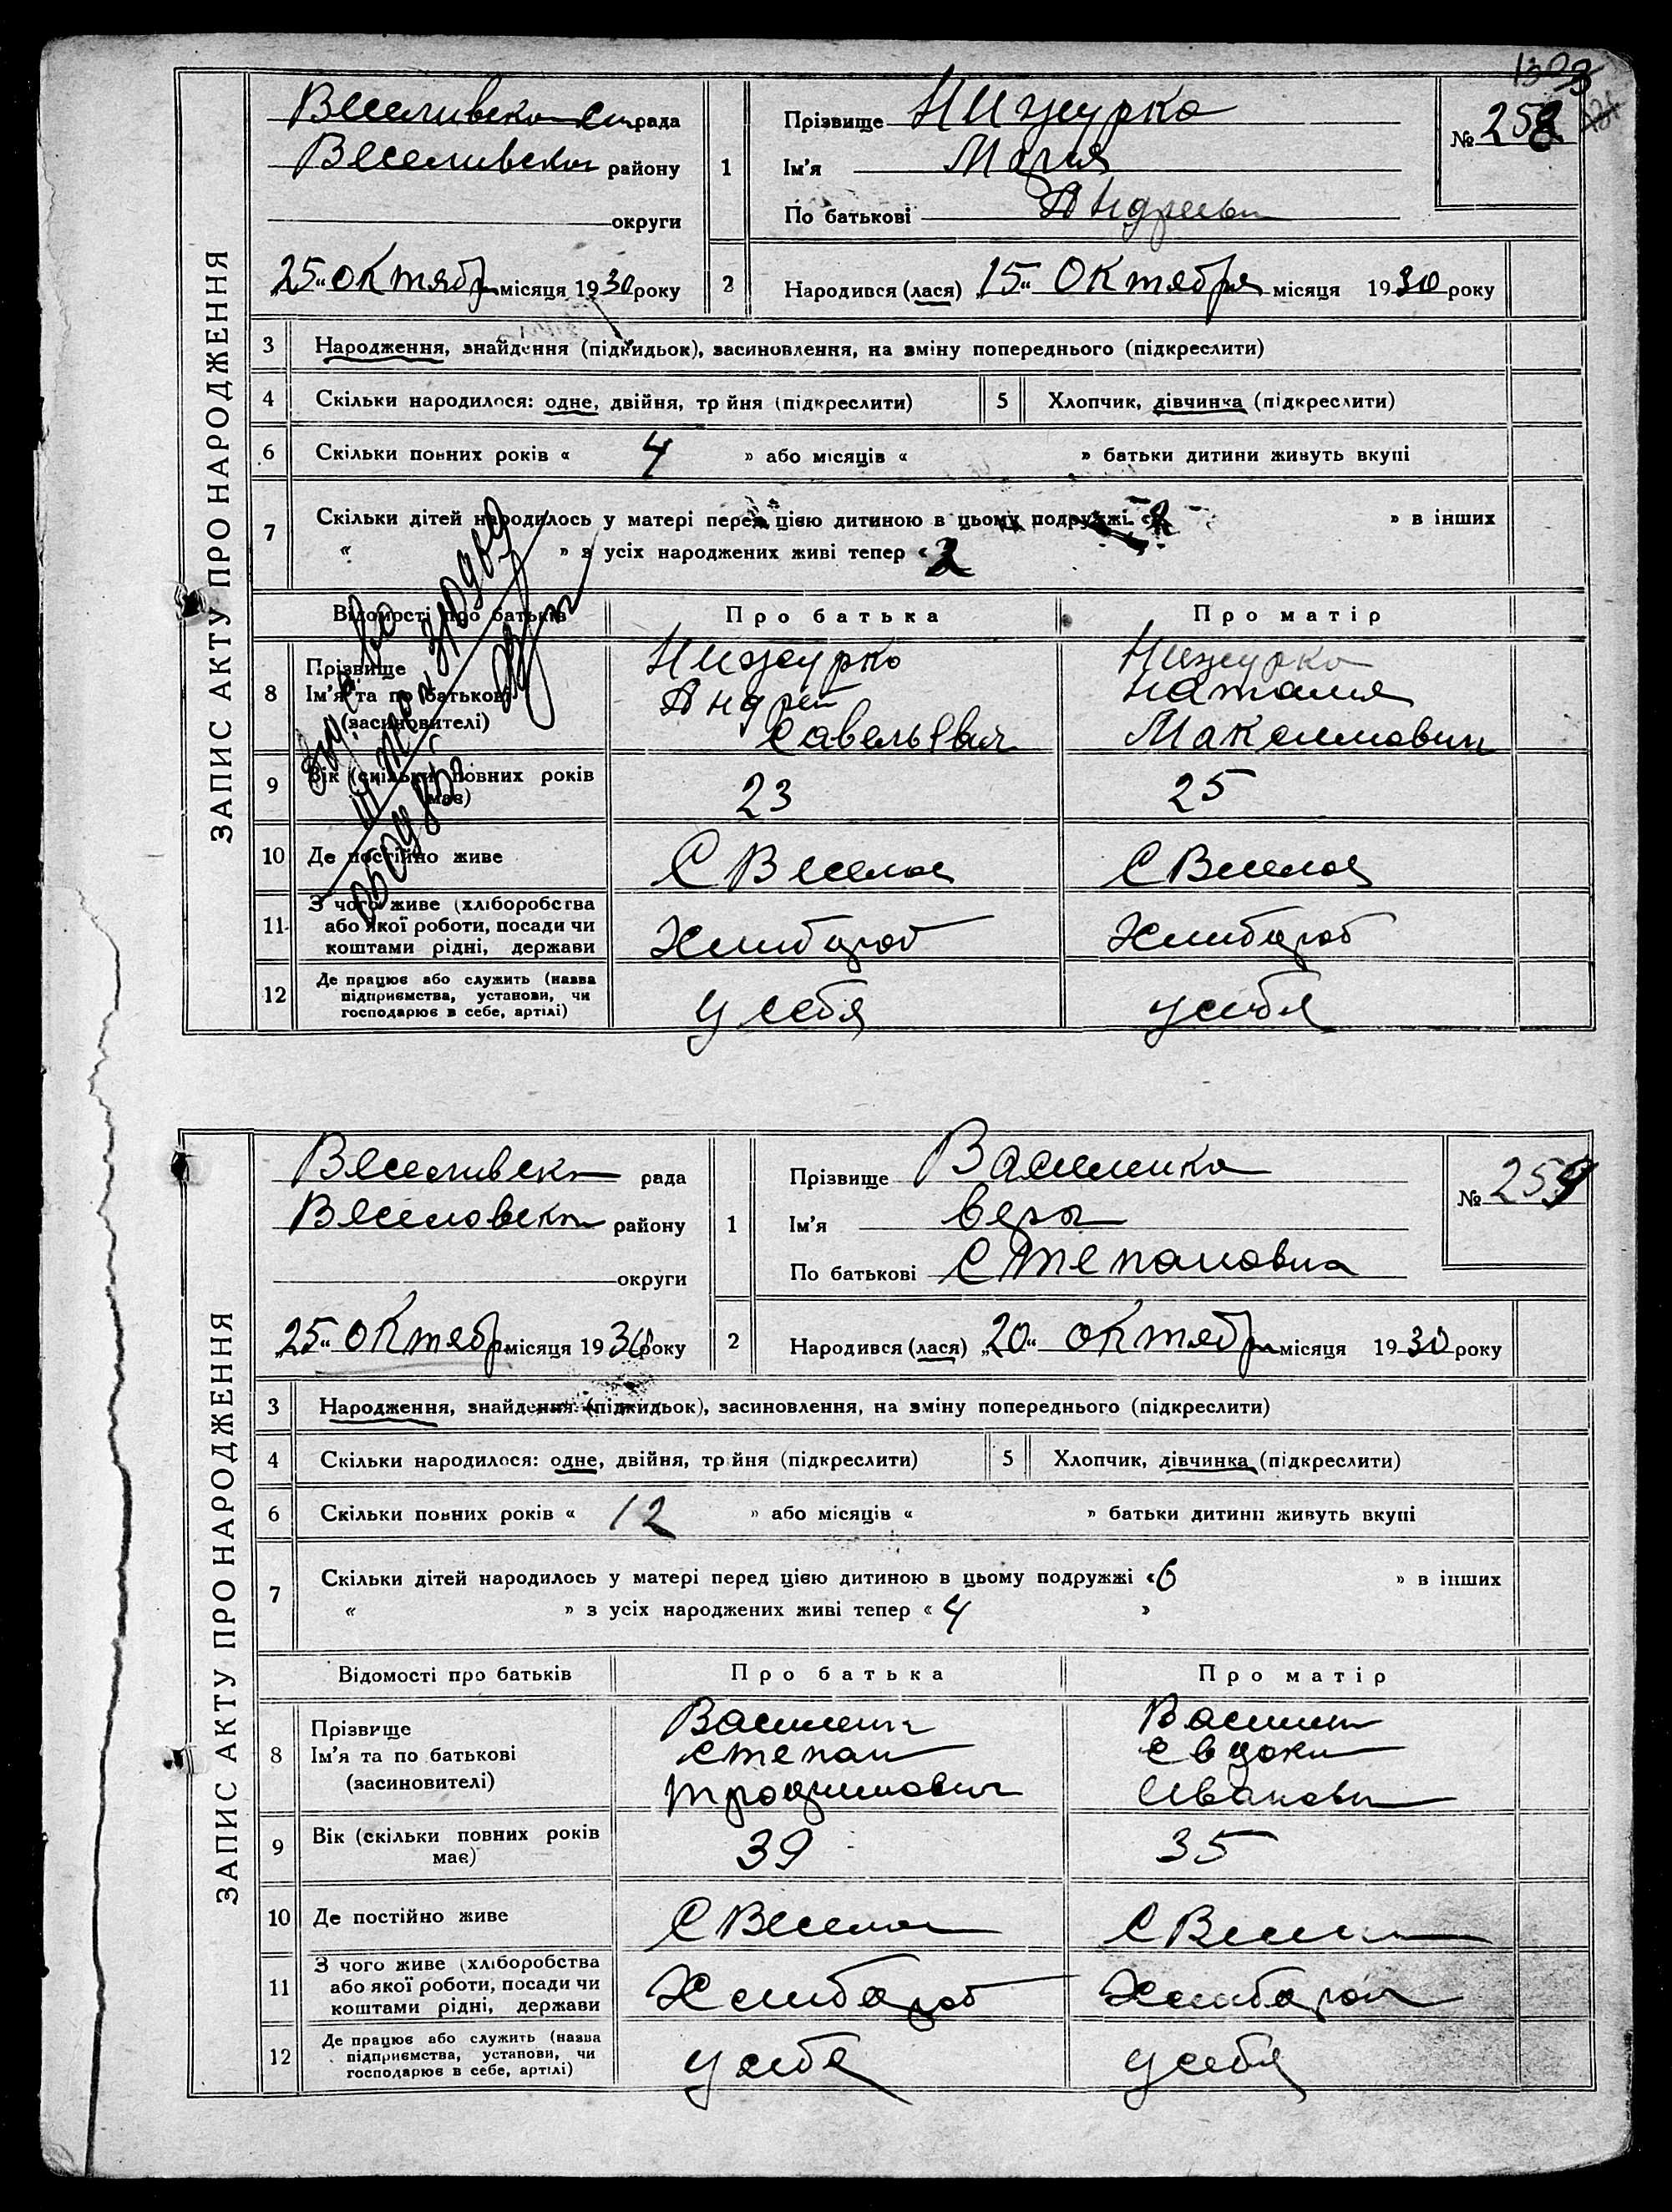 1303
ЗАПИС АКТУ ПРО НАРОДЖЕННЯ
рада
району
округи
„25“ Октябр місяця 1930 року
1
Прізвище Нижурко
Ім'я Мария
По батькові Андреевн
№ 258
2
Народився (лася) „15“ Октября місяця 1930 року
3 Народження, знайдення (підкидьок), засиновлення, на зміну попереднього (підкреслити)
4 Скільки народилося: одне, двійня, трійня (підкреслити) 5 Хлопчик, дівчинка (підкреслити)
6 Скільки повних років « 4 » або місяців « » батьки дитини живуть вкупі
7 Скільки дітей народилось у матері перед цією дитиною в цьому подружжі « 2 » в інших
« » з усіх народжених живі тепер « 2
Відомості про батьків Про батька Про матір
8 Прізвище Нижурко Нижурко
Ім'я та по батькові Андрей Наталия
(засиновителі) Савельевич Максимовн
9 Вік (скільки повних років має) 23 25
10 Де постійно живе С Веселое С Веселое
11 З чого живе (хліборобства
або якої роботи, посади чи
коштами рідні, держави Хлибороб Хлибороб
12 Де працює або служить (назва
підприємства, установи, чи
господарює в себе, артілі) у себя у себя
ЗАПИС АКТУ ПРО НАРОДЖЕННЯ
Веселивска рада
Веселовск району
округи
„25“ Октябр місяця 1930 року
1
Прізвище Василенко
Ім'я Вера
По батькові Степановна
№ 259
2
Народився (лася) „20“ Октябр місяця 1930 року
3 Народження, знайдення (підкидьок), засиновлення, на зміну попереднього (підкреслити)
4 Скільки народилося: одне, двійня, трійня (підкреслити) 5 Хлопчик, дівчинка (підкреслити)
6 Скільки повних років « 12 » або місяців « » батьки дитини живуть вкупі
7 Скільки дітей народилось у матері перед цією дитиною в цьому подружжі « 6 » в інших
« » з усіх народжених живі тепер « 4 »
Відомості про батьків Про батька Про матір
8 Прізвище Василенк Василен
Ім'я та по батькові Степан Евдоки
(засиновителі) Трофимович Ивановн
9 Вік (скільки повних років має) 39 35
10 Де постійно живе С Весело С Весел
11 З чого живе (хліборобства
або якої роботи, посади чи
коштами рідні, держави Хлибороб Хлибороб
12 Де працює або служить (назва
підприємства, установи, чи
господарює в себе, артілі) у себя у себя